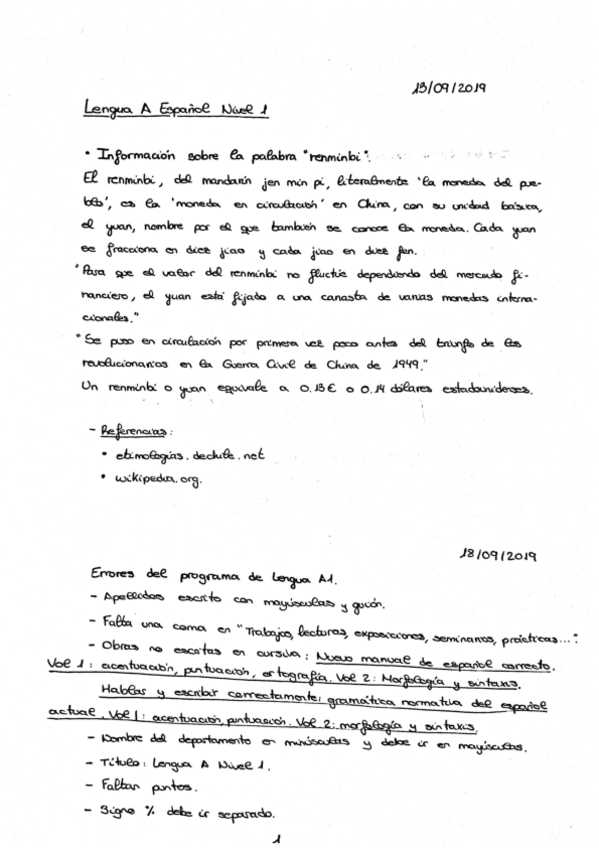 13/09/2019
Lengua A Español Nivel 1
• Información sobre la palabra "renminbi":
El renminbi, del mandarín jen min pi, literalmente 'la moneda del pue-
blo', es la 'moneda en circulación' en China, con su unidad básica,
el yuan, nombre por el que también se conoce la moneda. Cada yuan
se fracciona en diez jiao y cada jiao en diez fen.
"Para que el valor del renminbi no fluctúe dependiendo del mercado fi-
nanciero, el yuan está fijado a una canasta de varias monedas interna-
cionales."
"Se puso en circulación por primera vez poco antes del triunfo de los
revolucionarios en la Guerra Civil de China de 1949."
Un renminbi o yuan equivale a 0.13€ o 0.14 dólares estadounidenses.
- Referencias:
• etimologías.dechile.net
• wikipedia.org.
18/09/2019
Errores del programa de Lengua A1.
- Apellidos escrito con mayúsculas y guion.
- Falta una coma en "Trabajos, lecturas, exposiciones, seminarios, prácticas...".
- Obras no escritas en cursiva: Nuevo manual de español correcto.
Vol 1: acentuación, puntuación, ortografía. Vol 2: Morfología y sintaxis.
Hablar y escribir correctamente: gramática normativa del español
actual. Vol 1: acentuación, puntuación. Vol 2: morfología y sintaxis.
- Nombre del departamento en minúsculas y debe ir en mayúsculas.
- Título: Lengua A Nivel 1.
- Faltan puntos.
- Signo % debe ir separado.
1